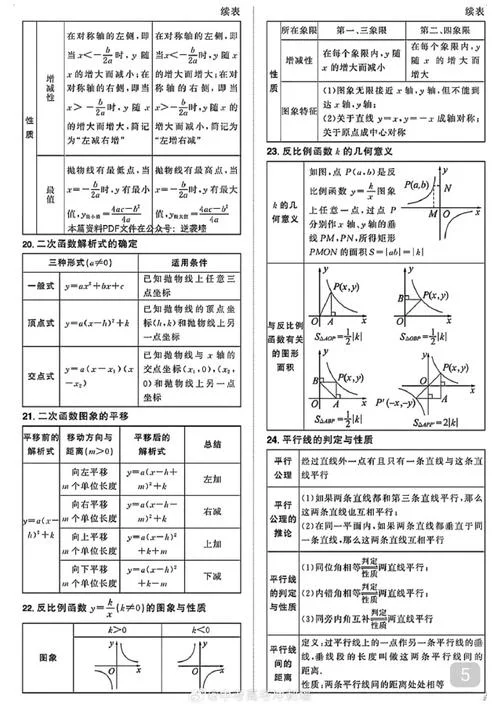 续表
性质
增减性
在对称轴的左侧，即
当x<-b/2a时，y随
x的增大而减小；在
对称轴的右侧，即当
x>-b/2a时，y随x
的增大而增大，简记
为“左减右增”
在对称轴的左侧，即
当x<-b/2a时，y随
x的增大而增大；在对
称轴的右侧，即当
x>-b/2a时，y随x的
增大而减小，简记为
“左增右减”
最值
抛物线有最低点，当
x=-b/2a时，y有最小
值，y最小值=4ac-b²/4a
抛物线有最高点，当
x=-b/2a时，y有最大
值，y最大值=4ac-b²/4a
本篇资料PDF文件在公众号：逆袭喵
20. 二次函数解析式的确定
三种形式(a≠0) 适用条件
一般式 y=ax²+bx+c
已知抛物线上任意三
点坐标
顶点式 y=a(x-h)²+k
已知抛物线的顶点坐
标(h,k)和抛物线上另
一点坐标
交点式
y=a(x-x₁)(x
-x₂)
已知抛物线与x轴的
交点坐标(x₁,0),(x₂,
0)和抛物线上另一点
坐标
21. 二次函数图象的平移
平移前的解析式 移动方向与距离(m>0) 平移后的解析式 总结
y=a(x-
h)²+k
向左平移
m个单位长度
y=a(x-h+
m)²+k
左加
向右平移
m个单位长度
y=a(x-h-
m)²+k
右减
向上平移
m个单位长度
y=a(x-h)²
+k+m
上加
向下平移
m个单位长度
y=a(x-h)²
+k-m
下减
22. 反比例函数y=k/x(k≠0)的图象与性质
k>0 k<0
图象
y O x
y O x
续表
所在象限 第一、三象限 第二、四象限
性质
增减性
在每个象限内，y随
x的增大而减小
在每个象限内，y
随x的增大而
增大
图象特征
(1)图象无限接近x轴，y轴，但不能到
达x轴，y轴；
(2)关于直线y=x，y=-x成轴对称；
关于原点成中心对称
23. 反比例函数k的几何意义
k的几何意义
如图，点P(a,b)是反
比例函数y=k/x图象
上任意一点，过点P
分别作x轴，y轴的垂
线PM,PN，所得矩形
PMON的面积S=|ab|=|k|
P(a,b) y N M O x
与反比例函数有关的图形面积
y P(x,y) O A x
S△AOP=1/2|k|
y B P(x,y) O x
S△OBP=1/2|k|
y B P(x,y) O A x
S△ABP=1/2|k|
y P(x,y) O x P'(-x,-y) A
S△APP'=2|k|
24. 平行线的判定与性质
平行公理
经过直线外一点有且只有一条直线与这条直
线平行
平行公理的推论
(1)如果两条直线都和第三条直线平行，那么
这两条直线也互相平行；
(2)在同一平面内，如果两条直线都垂直于同
一条直线，那么这两条直线互相平行
平行线的判定与性质
(1)同位角相等 判定/性质 两直线平行；
(2)内错角相等 判定/性质 两直线平行；
(3)同旁内角互补 判定/性质 两直线平行
平行线间的距离
定义：过平行线上的一点作另一条平行线的垂
线，垂线段的长度叫做这两条平行线间的
距离.
性质：两条平行线间的距离处处相等
5